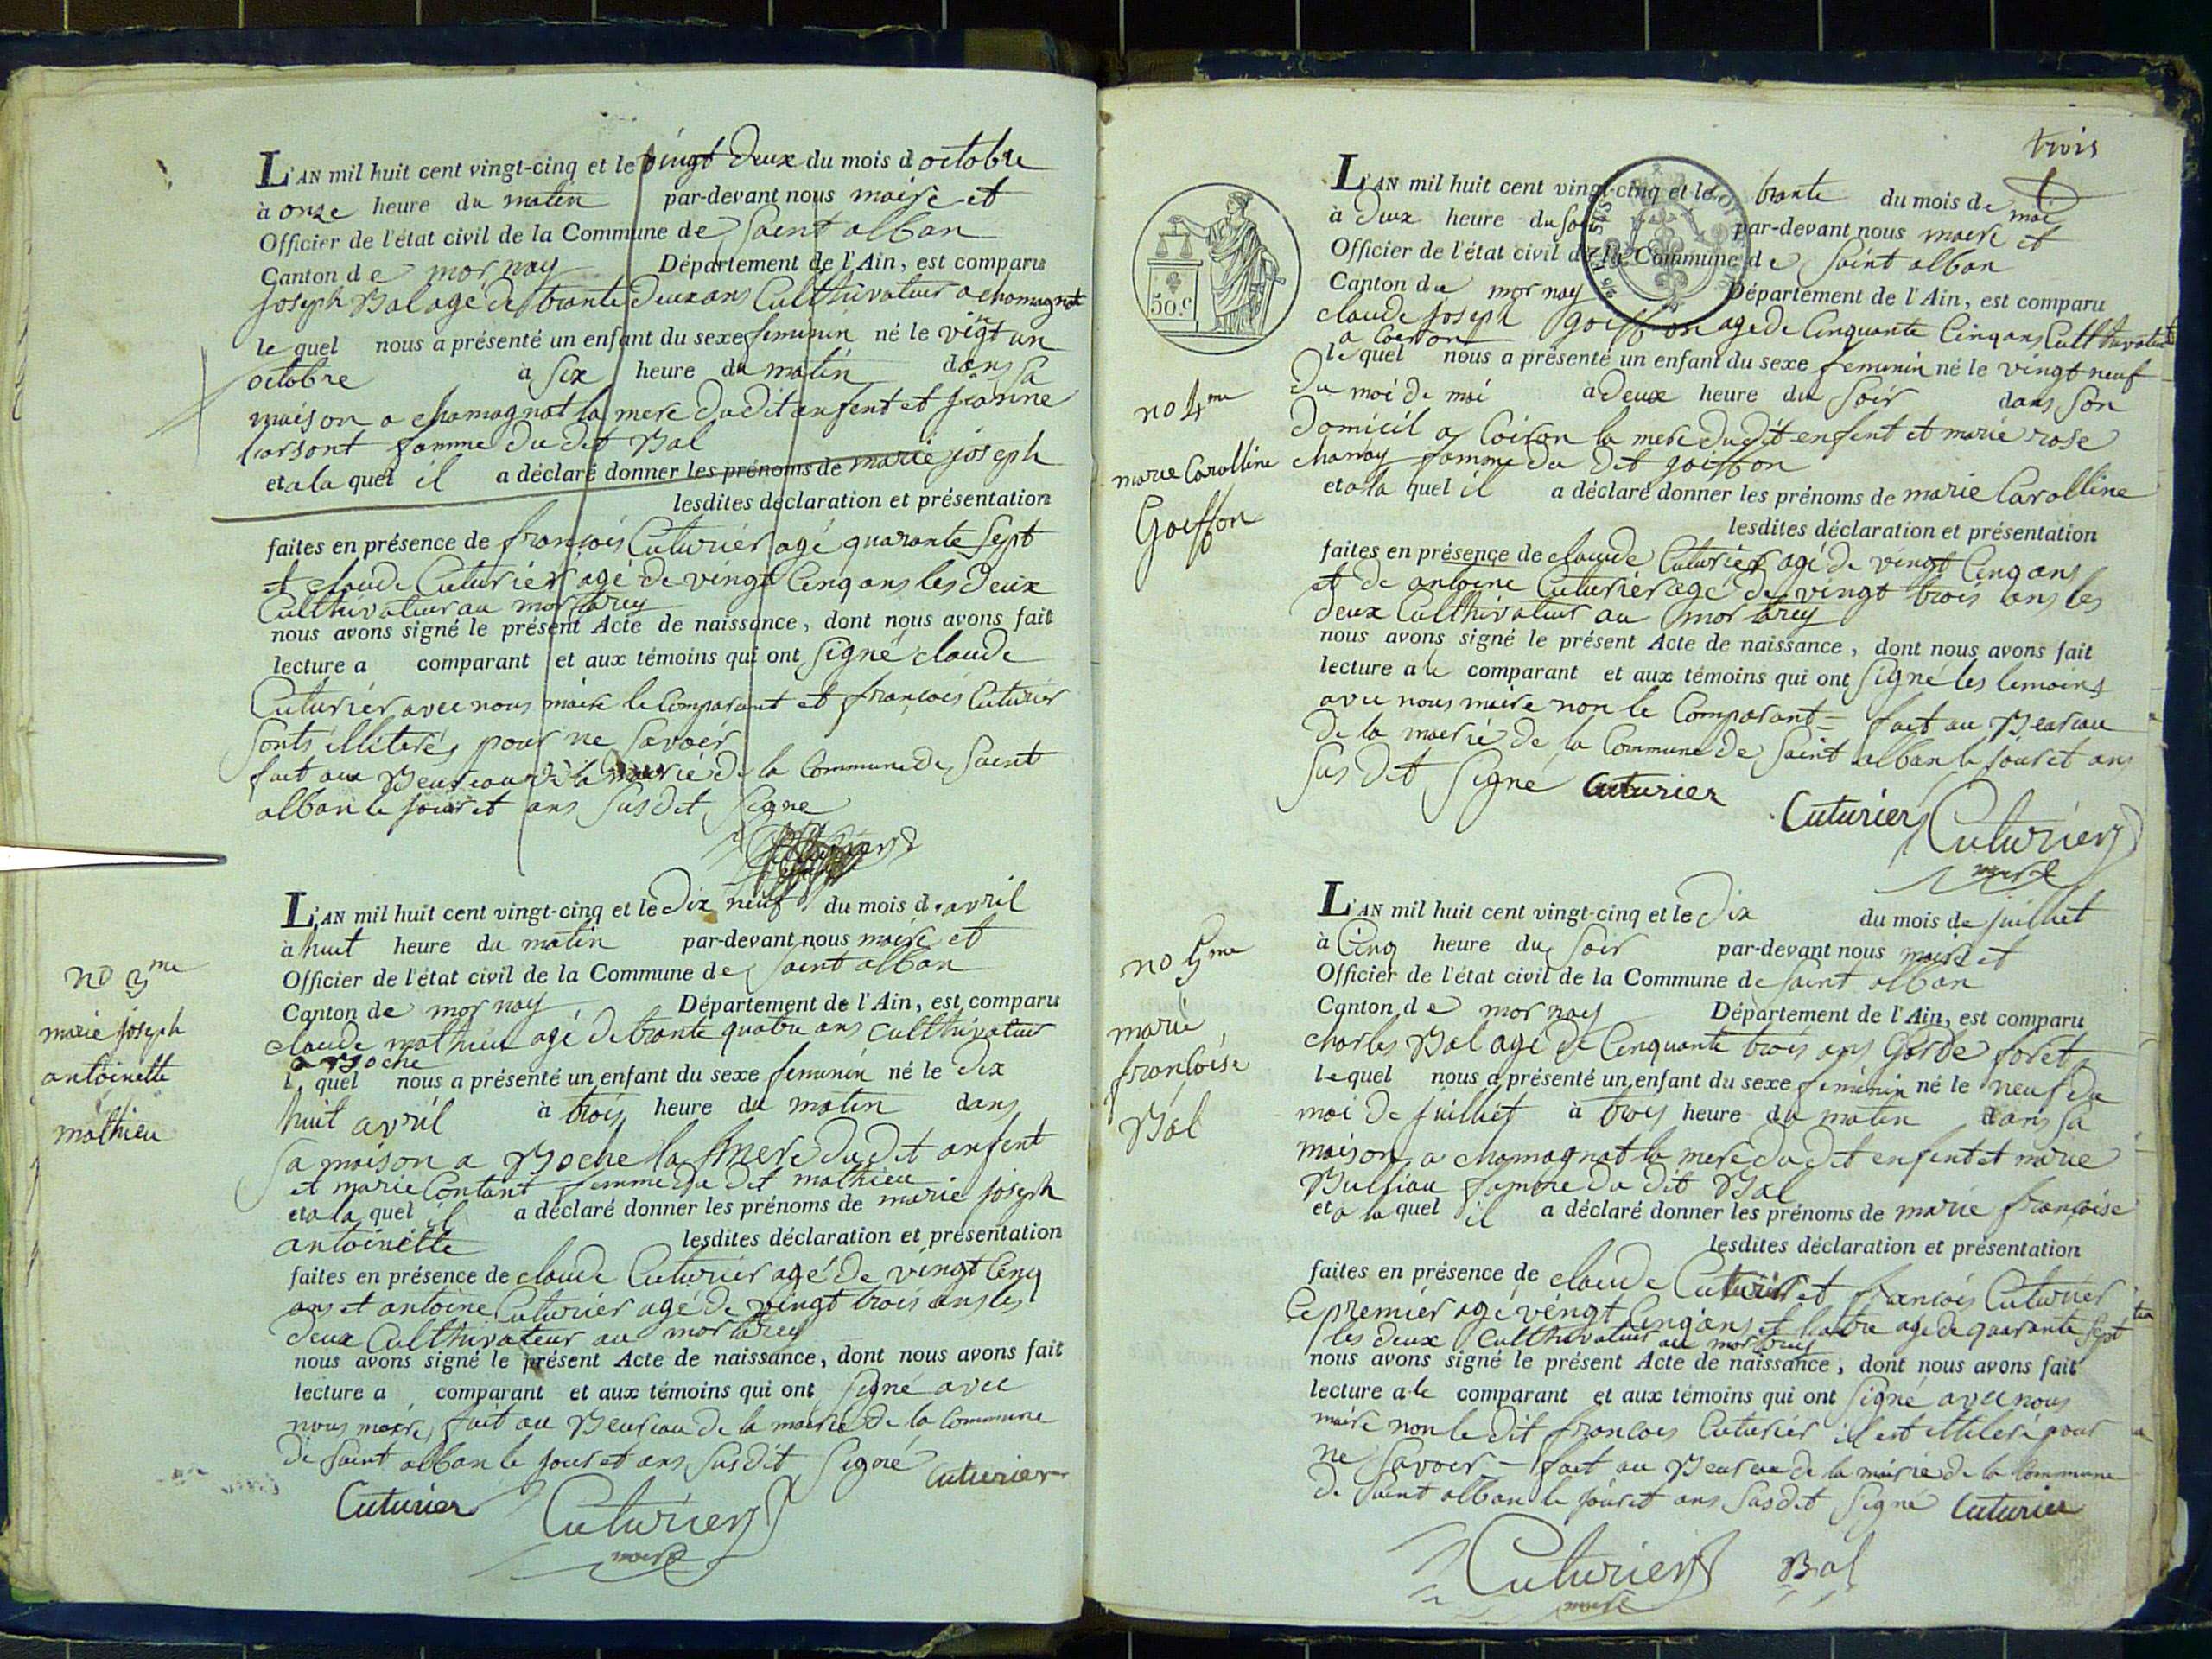 L'AN mil huit cent vingt-cinq et le vingt deux du mois d octobre
à onze heure du matin par-devant nous maire et
Officier de l'état civil de la Commune de Saint alban
Canton de mornay Département de l'Ain, est comparu
joseph Bal age de trante deux ans Culthivateur a chamagnat
le quel nous a présenté un enfant du sexe feminin né le vingt un
octobre à six heure du matin dans sa
maison a chamagnat la mere du dit anfent et jeanne
famme du dit Bal
et a la quel il a déclaré donner les prénoms de marie joseph
lesdites déclaration et présentation
faites en présence de francois Cuturier agé quarante sept
et claude Cuturier agé de vingt Cinq ans les deux
Culthivateur au mortarey
nous avons signé le présent Acte de naissance, dont nous avons fait
lecture a comparant et aux témoins qui ont signé claude
Cuturier avec nous maire le Comparant et francois Cuturier
sonts illiterés pour ne savoir
fait aux Beureau de la mairié de la Commune de Saint
alban le jour et ans susdit signe
L'AN mil huit cent vingt-cinq et le dix neuf du mois d. avril
à huit heure du matin par-devant nous maire et
Officier de l'état civil de la Commune de Saint alban
Canton de mornay Département de l'Ain, est comparu
claude mathieu agé de trante quatre ans culthivateur
a Boche
l. quel nous a présenté un enfant du sexe feminin né le dix
huit avril à trois heure du matin dans
sa maison a Boche la mere du dit anfent
et marie Contant femme du dit mathieu
et a la quel il a déclaré donner les prénoms de marie joseph
antoinette lesdites déclaration et présentation
faites en présence de claude Cuturier agé de vingt Cinq
ans et antoine Cuturier agé de vingt trois ans les
deux Culthivateur au mortarey
nous avons signé le présent Acte de naissance, dont nous avons fait
lecture a comparant et aux témoins qui ont signé avec
nous maire, fait au Beureau de la mairie de la Commune
de Saint alban le jour et ans susdit signé Cuturier
Cuturier Cuturier
maire
no 3me
marie joseph
antoinette
mathieu
trois
L'AN mil huit cent vingt-cinq et le trante du mois de mai
à deux heure du soir par-devant nous maire et
Officier de l'état civil de la Commune de Saint alban
Canton de mornay Département de l'Ain, est comparu
claude joseph goiffon age de Cinquante Cinq ans Culthivateur
a Coiron
le quel nous a présenté un enfant du sexe feminin né le vingt neuf
du moi de mai à deux heure du soir dans son
domicil a Coiron la mere du dit enfent et marie rose
charnay famme du dit goiffon
et a la quel il a déclaré donner les prénoms de marie Carolline
lesdites déclaration et présentation
faites en présence de claude Cuturier agé de vingt Cinq ans
et de antoine Cuturier agé de vingt trois ans les
deux Culthivateur au mortarey
nous avons signé le présent Acte de naissance, dont nous avons fait
lecture a le comparant et aux témoins qui ont signé les temoins
avec nous maire non le Comparant - fait au Beureau
de la mairie de la Commune de Saint alban le jour et ans
susdit signé Cuturier
Cuturier Cuturier
maire
50 c
no 4me
marie Carolline
Goiffon
L'AN mil huit cent vingt-cinq et le dix du mois de juillet
à Cinq heure du soir par-devant nous maire et
Officier de l'état civil de la Commune de Saint alban
Canton de mornay Département de l'Ain, est comparu
charles Bal agé de Cinquante trois ans Garde forets
le quel nous a présenté un enfant du sexe feminin né le neuf du
moi de juilliet à trois heure du matin dans sa
maison a chamagnat la mere du dit enfent et marie
famme du dit Bal
et a la quel il a déclaré donner les prénoms de marie françoise
lesdites déclaration et présentation
faites en présence de claude Cuturier et francois Cuturier
le premier agé vingt Cinq ans et l'autre age de quarante sept
les deux Culthivateur au mortarey
nous avons signé le présent Acte de naissance, dont nous avons fait
lecture a le comparant et aux témoins qui ont signé avec nous
maire non le dit francois Cuturier il est illiteré pour
ne savoir - fait au Beureau de la mairie de la Commune
de Saint alban le jour et ans susdit signé Cuturier
Cuturier Bal
maire
no 5me
marie
françoise
Bal